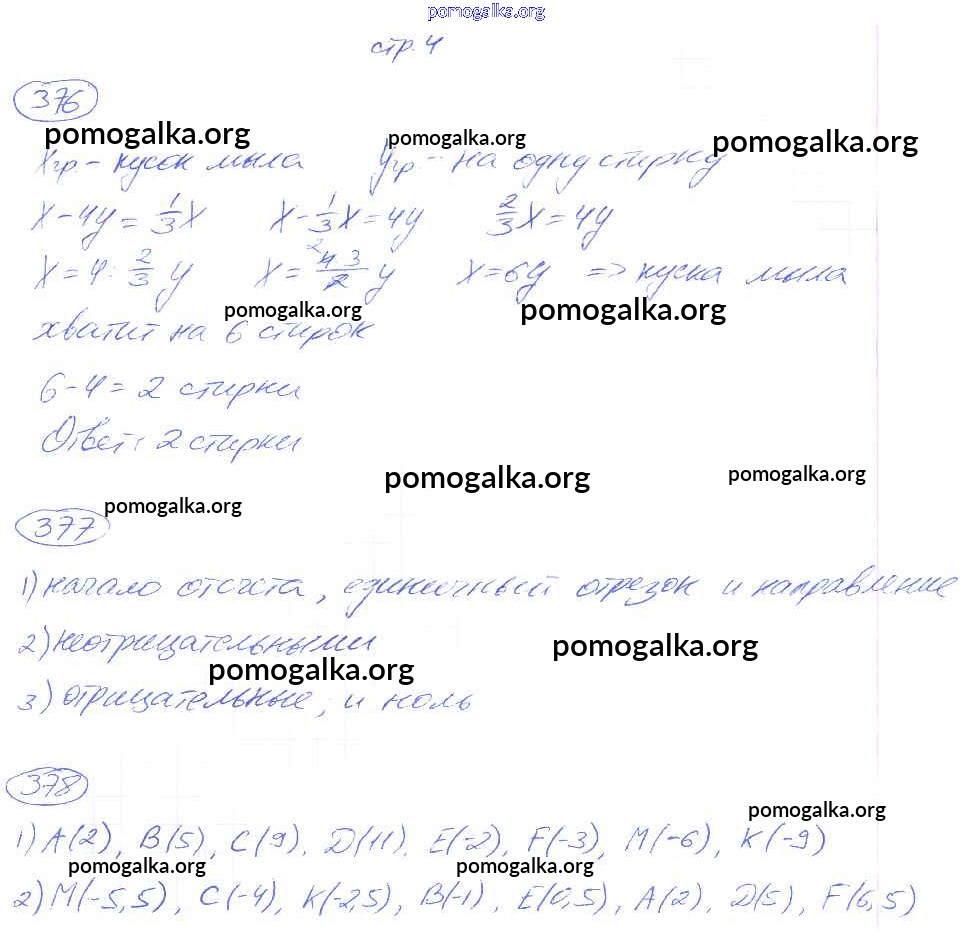 pomogalka.org
стр. 4
376
pomogalka.org pomogalka.org pomogalka.org
Xгр. - кусок мыла Yгр - на одну стирку
X - 4y = 1/3 X X - 1/3 X = 4y 2/3 X = 4y
X = 4 : 2/3 y X = 4·3/2 y X = 6y => куска мыла
pomogalka.org pomogalka.org
хватит на 6 стирок
6 - 4 = 2 стирки
Ответ: 2 стирки
pomogalka.org pomogalka.org
pomogalka.org
377
1) начало отсчета, единичный отрезок и направление
2) неотрицательными
pomogalka.org pomogalka.org
3) отрицательные; и ноль
378
pomogalka.org
1) A(2), B(5), C(9), D(11), E(-2), F(-3), M(-6), K(-9)
pomogalka.org pomogalka.org
2) M(-5,5), C(-4), K(-2,5), B(-1), E(0,5), A(2), D(5), F(6,5)